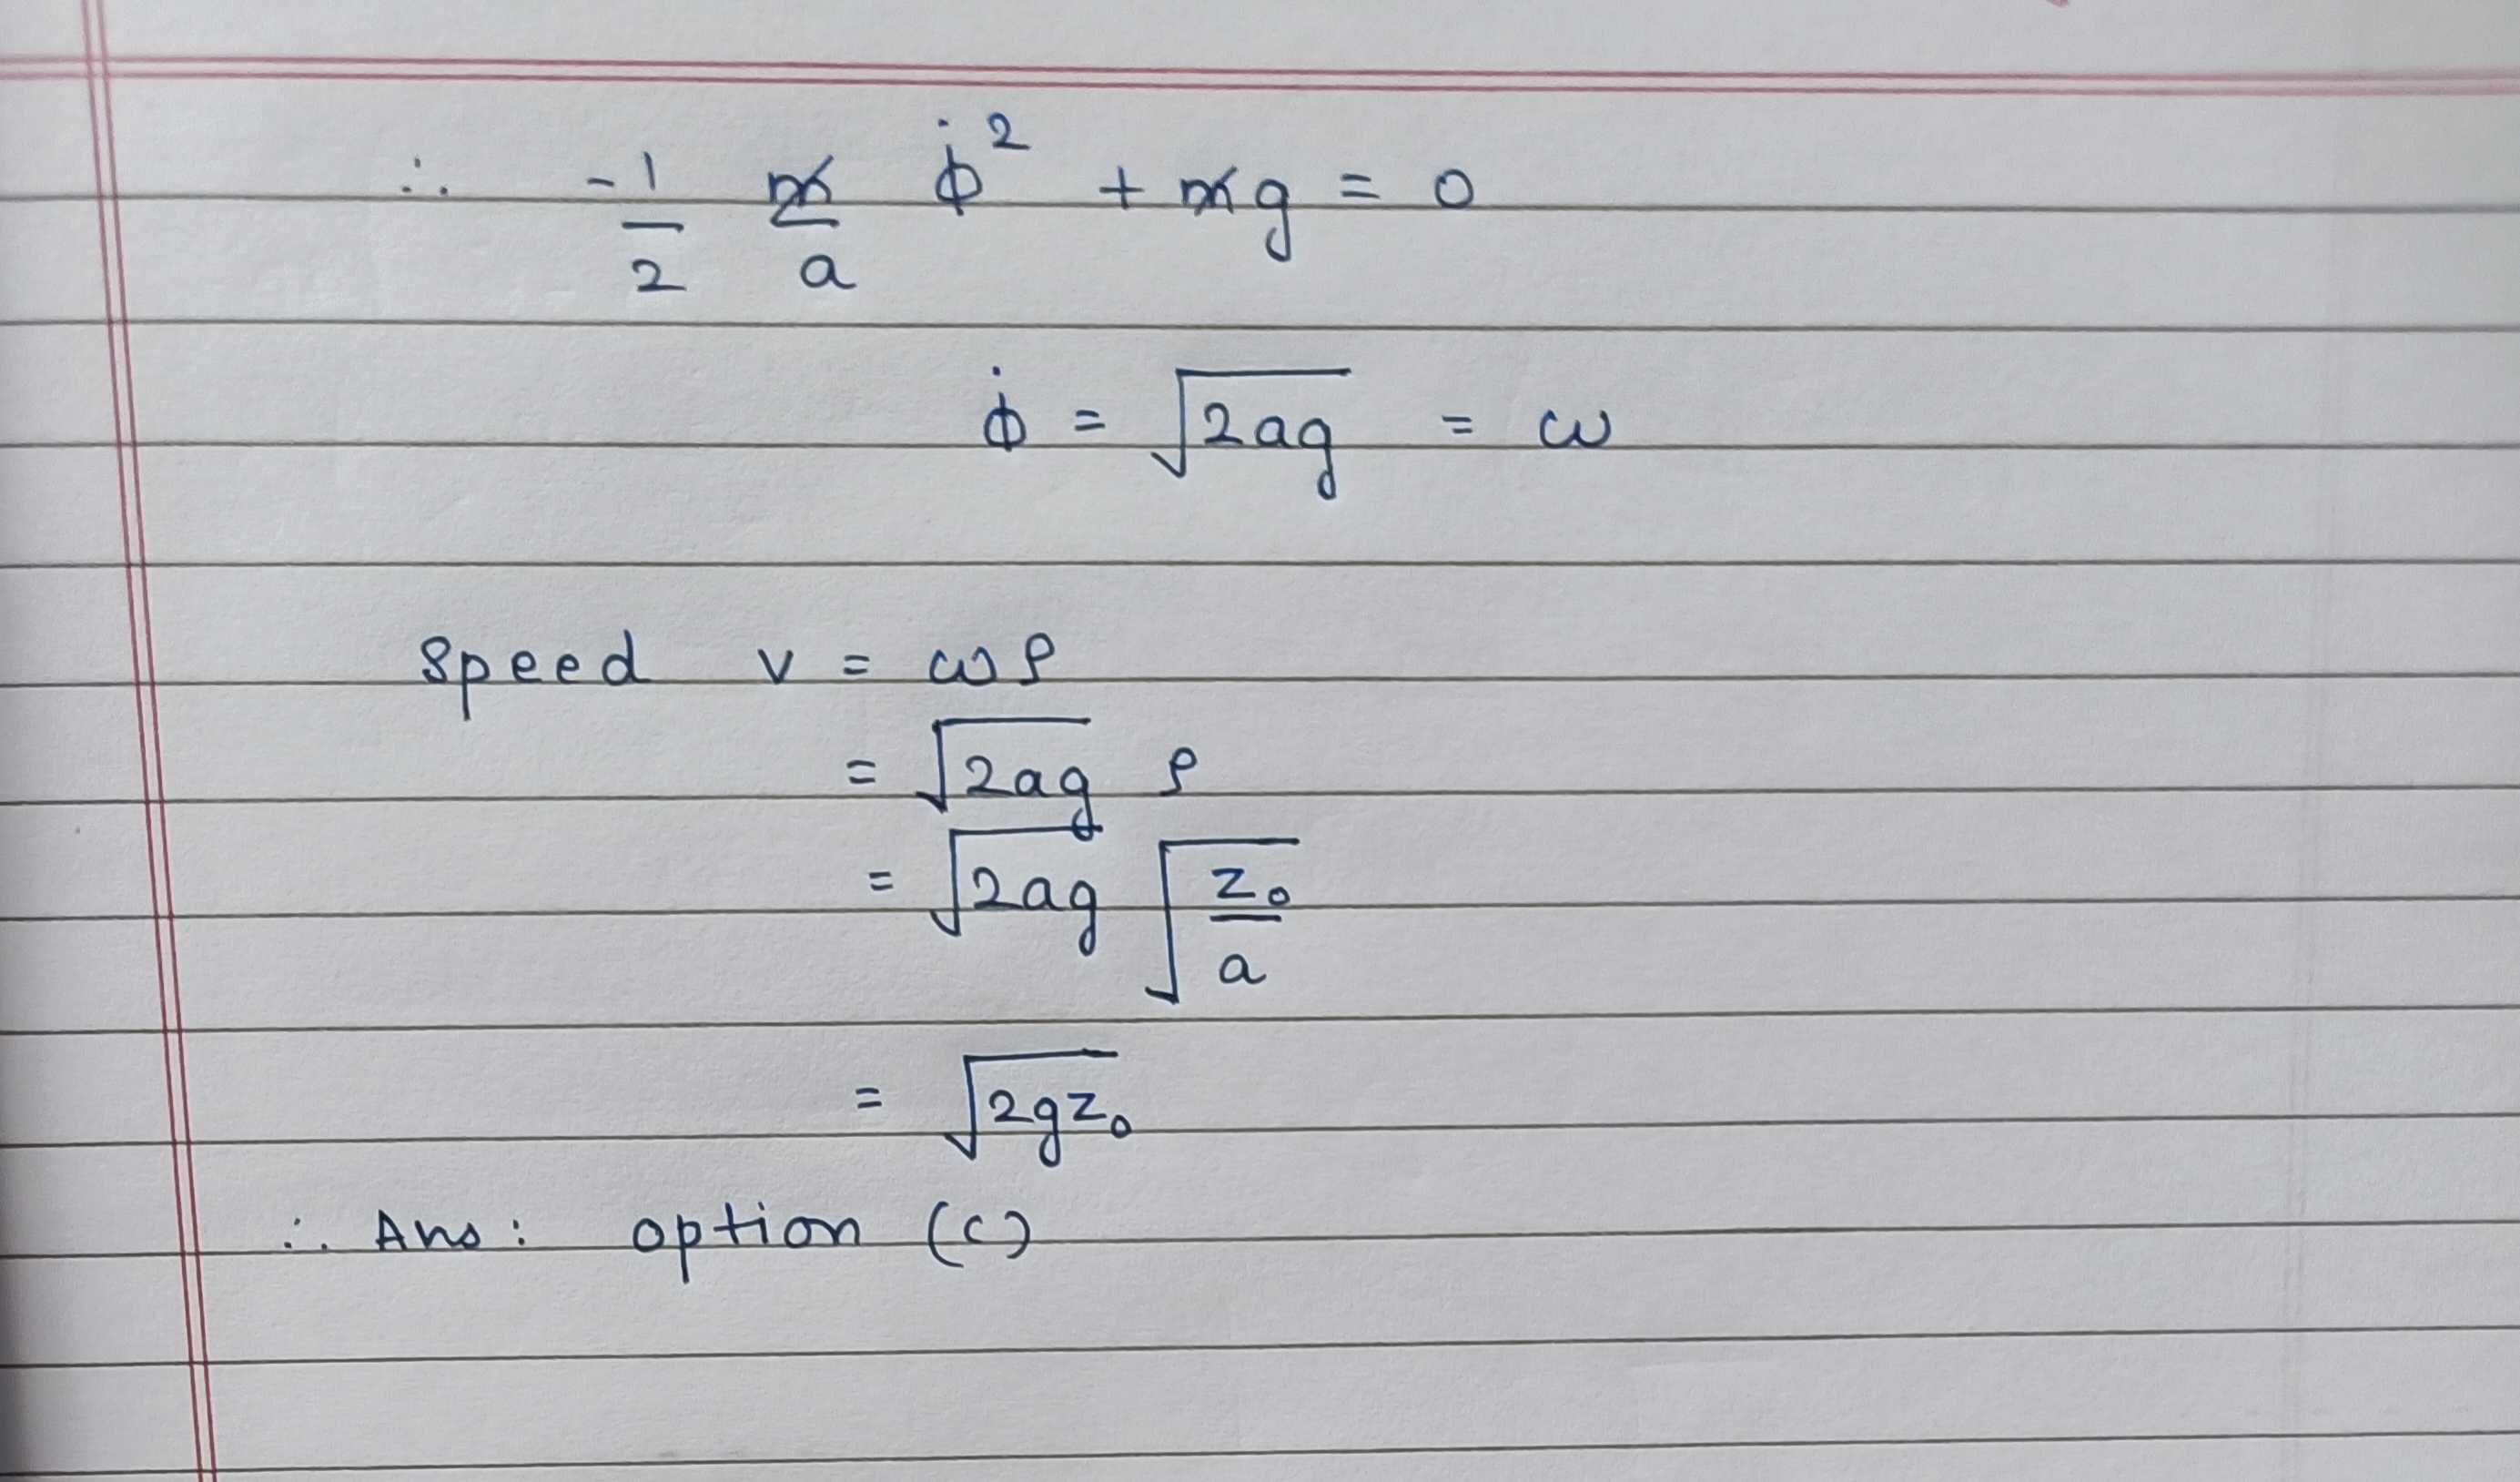 ∴ -1/2 m/a φ̇² + mg = 0
φ̇ = √2ag = ω
Speed v = ωρ
= √2ag ρ
= √2ag √z₀/a
= √2gz₀
∴ Ans: option (c)